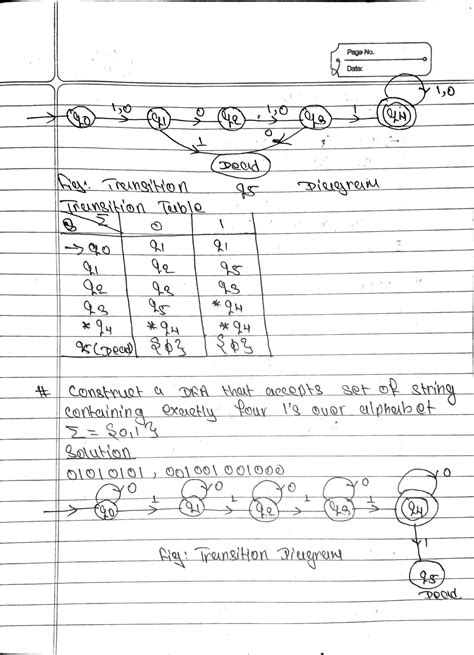 Page No.
Date:
1,0
1,0 0 1,0 1
q0 q1 q2 q3 q4
1 0
Dead
Fig: Transition q5 Diagram
Transition Table
Q Σ 0 1
→ q0 q1 q1
q1 q2 q5
q2 q3 q3
q3 q5 *q4
*q4 *q4 *q4
q5(Dead) {φ} {φ}
# Construct a DFA that accepts set of string
containing exactly four 1's over alphabet
Σ = {0,1}
Solution
01010101, 001001001000
0 0 0 0 0
1 1 1 1
q0 q1 q2 q3 q4
1
Fig: Transition Diagram
q5
Dead.